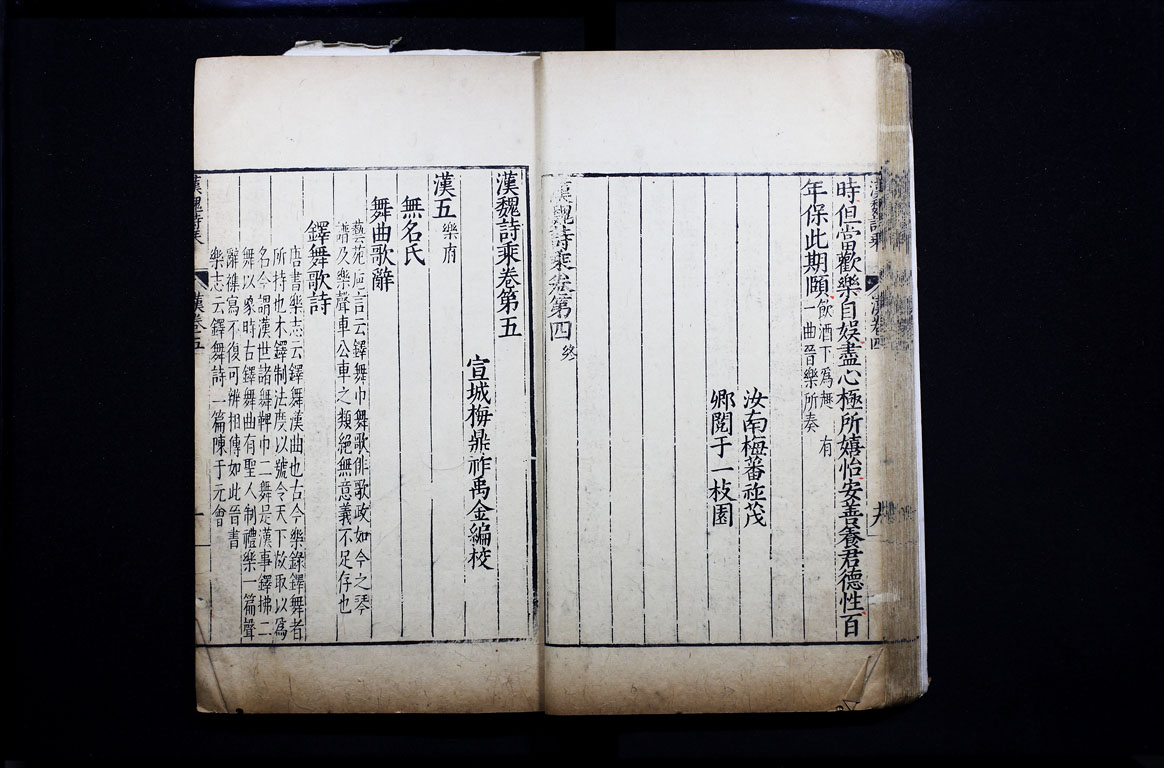 時但當歡樂自娛盡心極所嬉怡安善養君德性百
年保此期頤 飲酒下爲趣 有
一曲晉樂所奏
汝南梅蕃祚茂
卿閱于一枝園
漢魏詩乘卷第四 終
漢魏詩乘卷第五
宣城梅鼎祚禹金編校
漢五 樂府
無名氏
舞曲歌辭
藝苑巵言云鐸舞巾舞歌俳歌政如今之琴
譜及樂聲車公車之類絕無意義不足存也
鐸舞歌詩
唐書樂志云鐸舞漢曲也古今樂錄鐸舞者
所持也木鐸制法度以號令天下故取以爲
名今謂漢世諸舞鞞巾二舞是漢事鐸拂二
舞以象時古鐸舞曲有聖人制禮樂一篇聲
辭襍寫不復可辨相傳如此晉書
樂志云鐸舞詩一篇陳于元會
漢魏詩乘
漢卷五